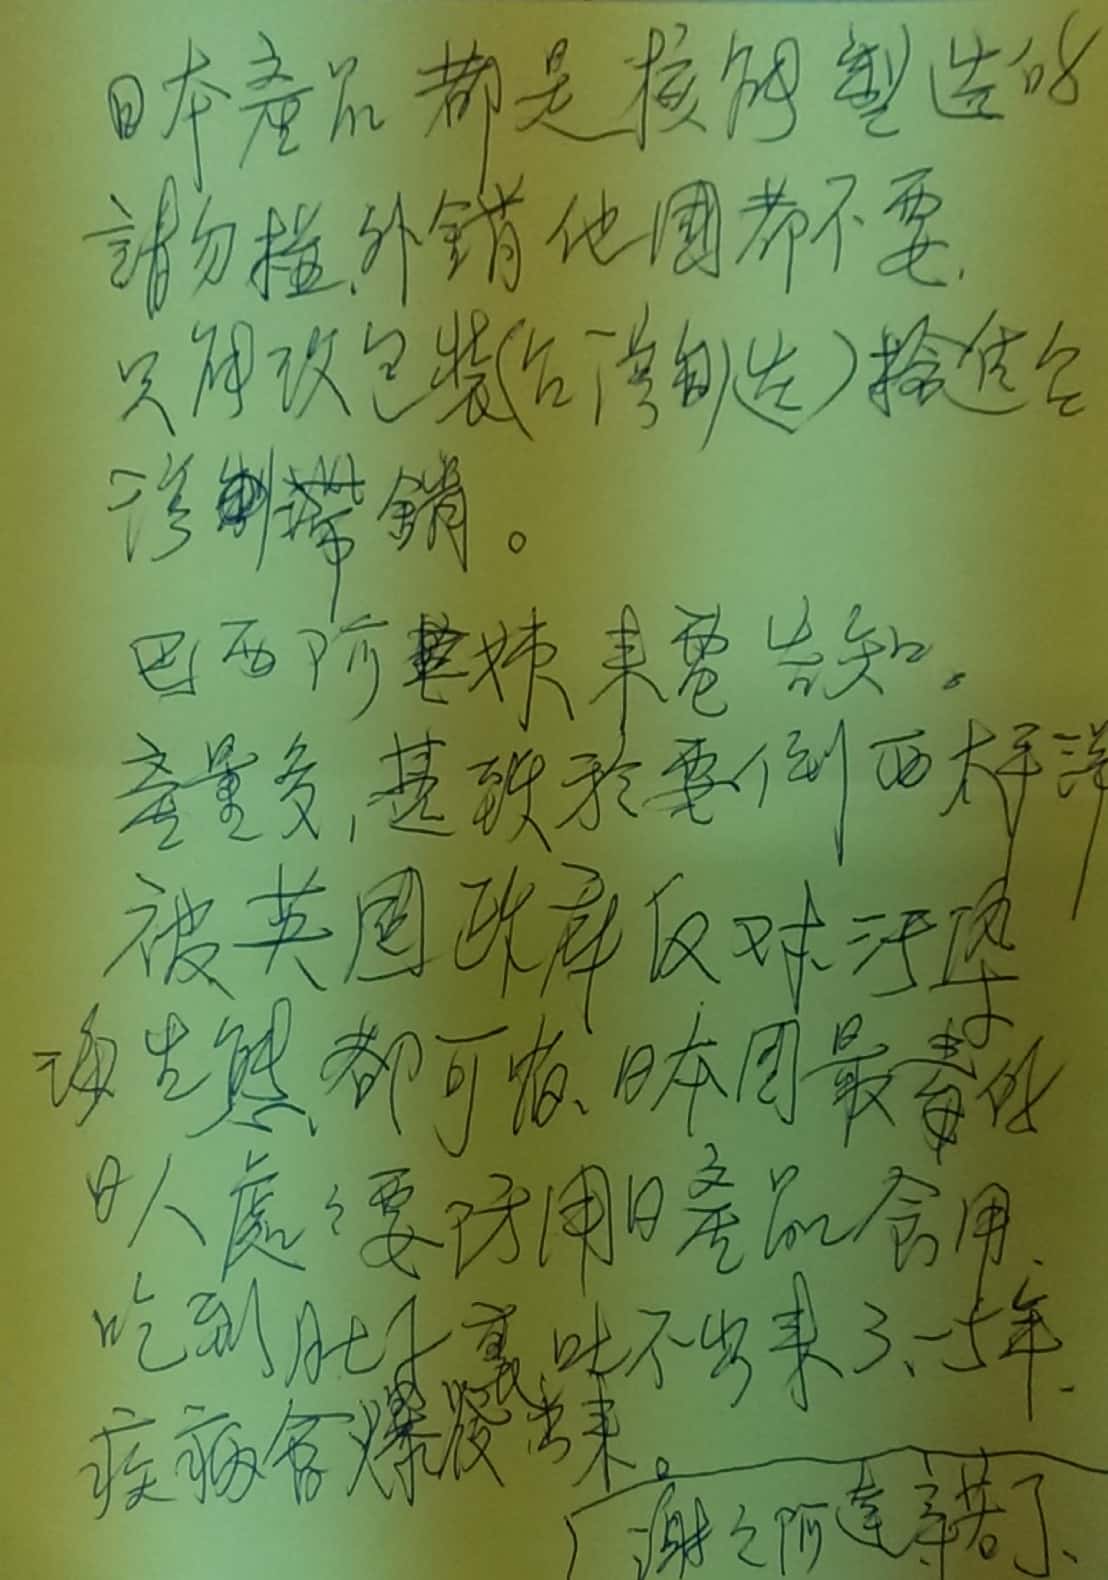 日本產品都是核能製造的
請勿推外銷他國都不要.
只能改包裝(台灣制造)搶佔台
灣制滯銷。
巴西阿姨來電告知。
產量多,甚致於要倒西太平洋
被英國政府反對汙染
海生態都可怕、日本國最毒的
日人處々要防用日產品食用.
吃到肚子裏吐不出來3、-5年.
疾病會爆發出來。
謝々阿達辛苦了.